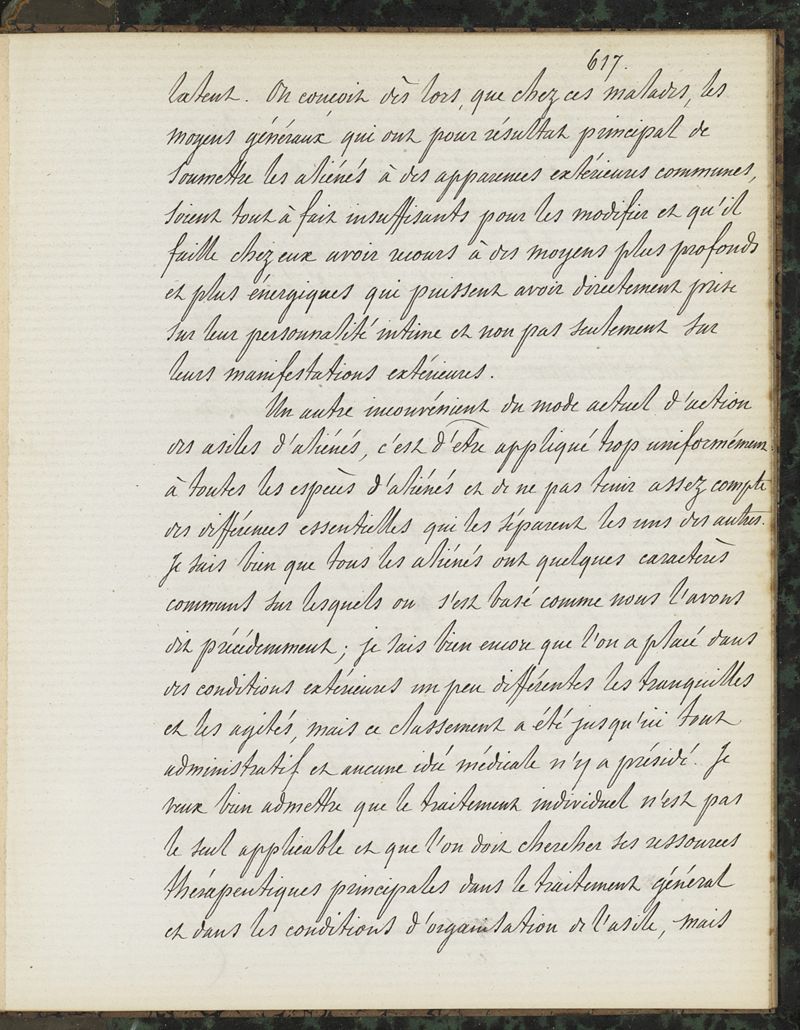 617.
latent. On conçoit dès lors, que chez ces malades, les
moyens généraux qui ont pour résultat principal de
soumettre les aliénés à des apparences extérieures communes,
soient tout à fait insuffisants pour les modifier et qu'il
faille chez eux avoir recours à des moyens plus profonds
et plus énergiques qui puissent avoir directement prise
sur leur personnalité intime et non pas seulement sur
leurs manifestations extérieures.
Un autre inconvénient du mode actuel d'action
des asiles d'aliénés, c'est d'être appliqué trop uniformément
à toutes les espèces d'aliénés et de ne pas tenir assez compte
des différences essentielles qui les séparent les uns des autres.
Je sais bien que tous les aliénés ont quelques caractères
communs sur lesquels on s'est basé comme nous l'avons
dit précédemment; je sais bien encore que l'on a placé dans
des conditions extérieures un peu différentes les tranquilles
et les agités, mais ce classement a été jusqu'ici tout
administratif et aucune idée médicale n'y a présidé. Je
veux bien admettre que le traitement individuel n'est pas
le seul applicable et que l'on doit chercher ses ressources
thérapeutiques principales dans le traitement général
et dans les conditions d'organisation de l'asile, mais